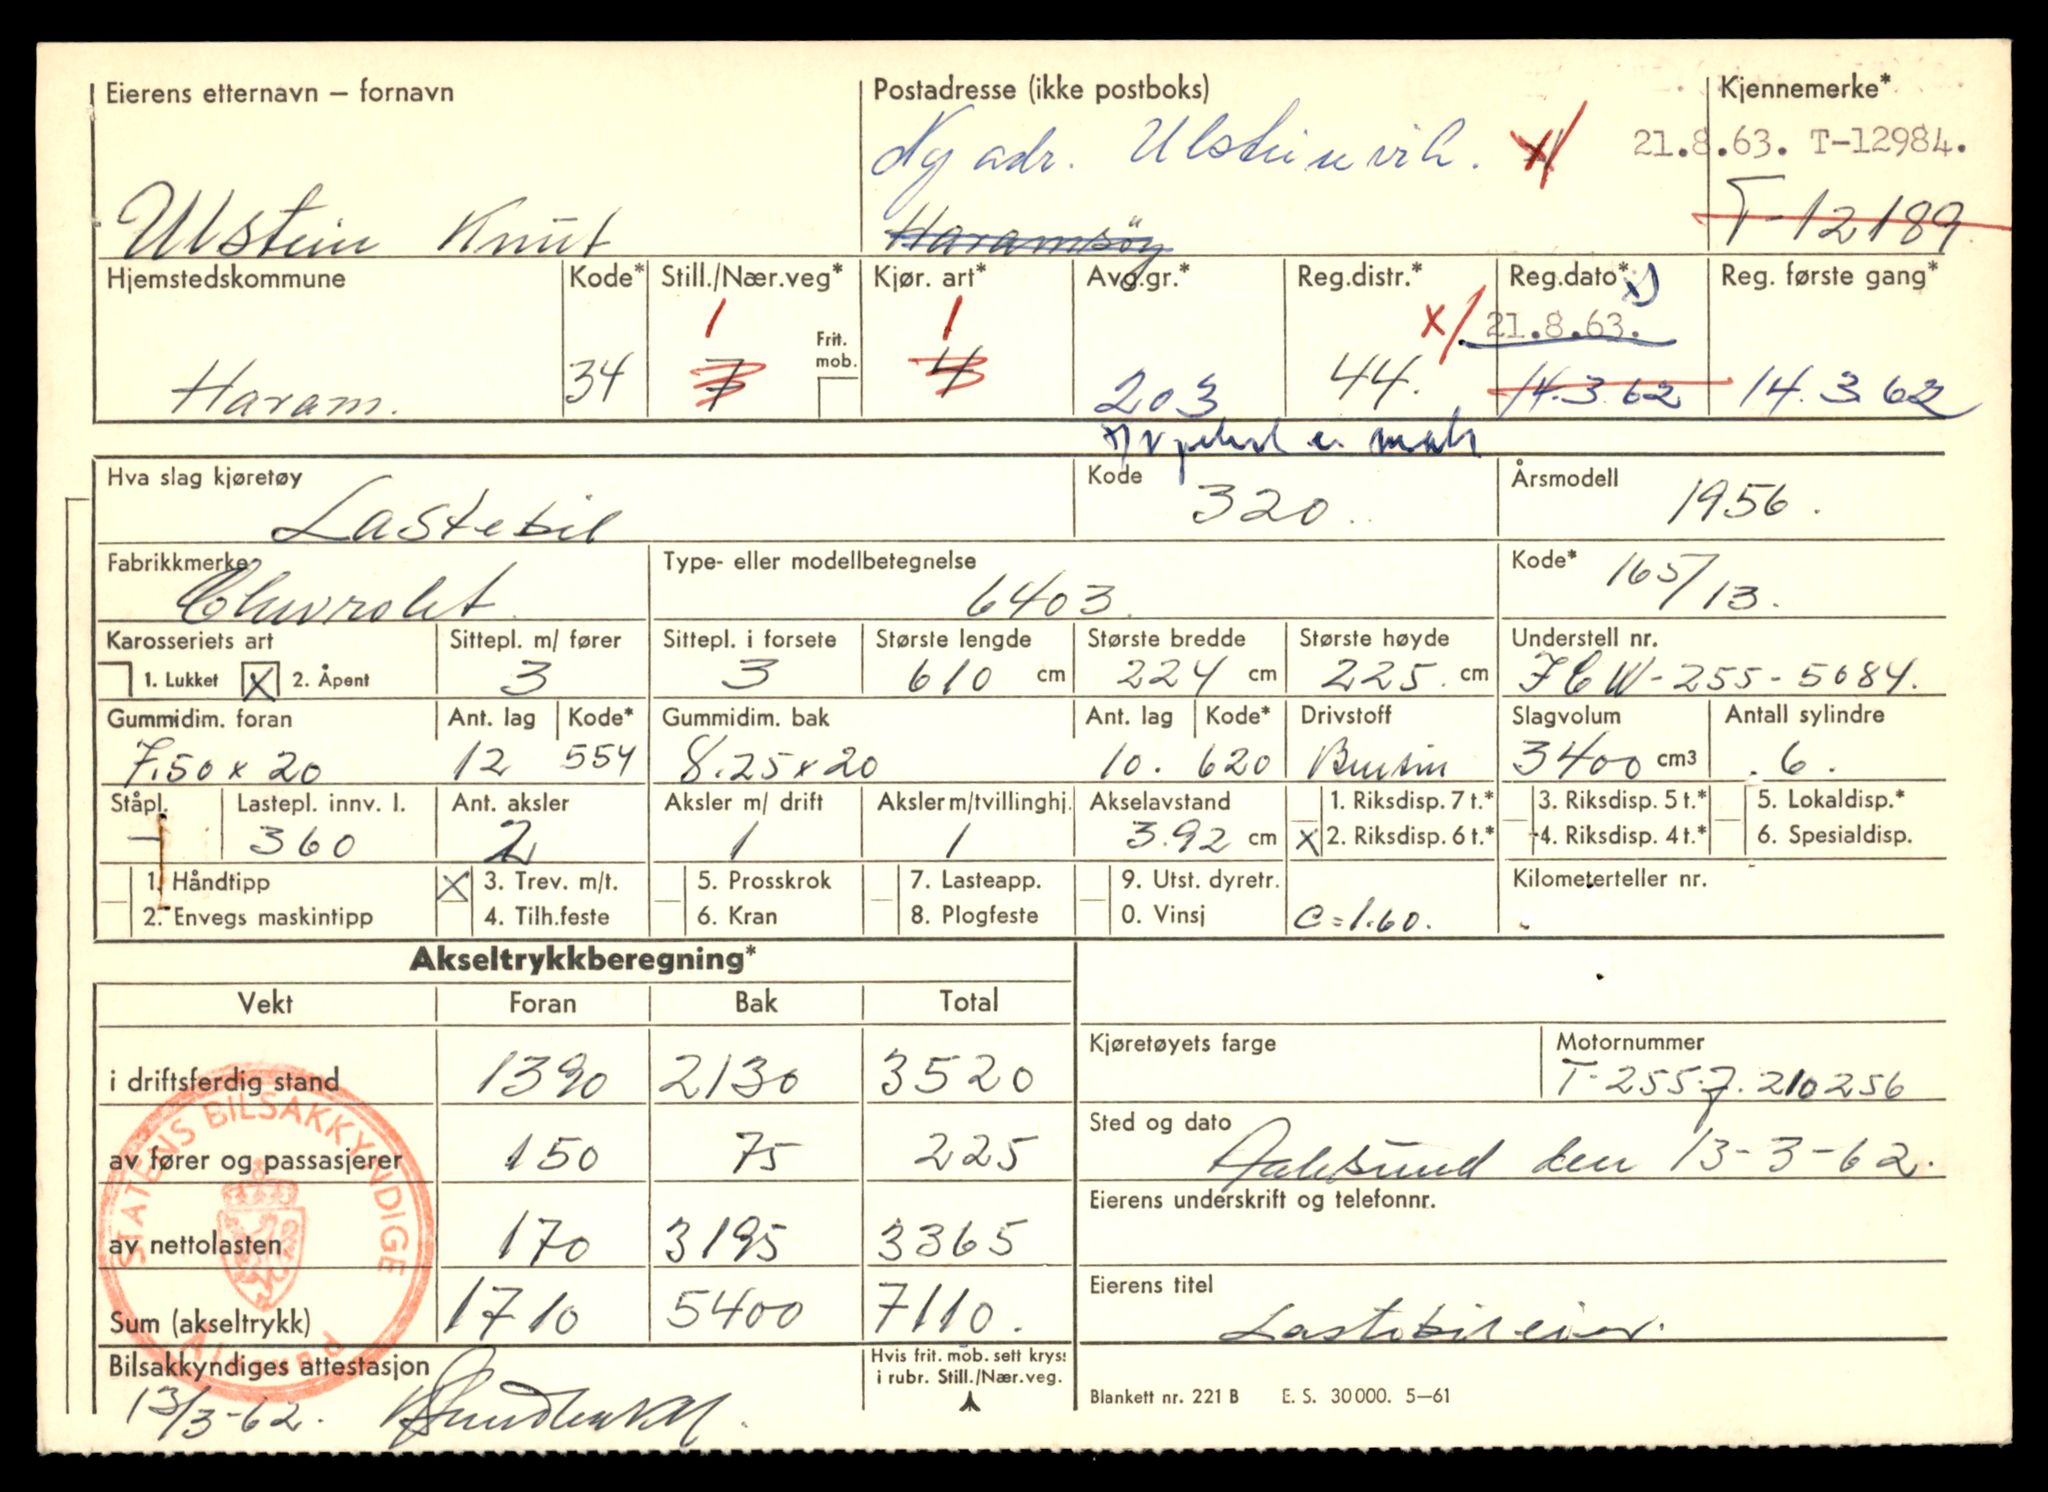 Eierens etternavn – fornavn Postadresse (ikke postboks) Kjennemerke*
Ny adr. Ulsteinvik. x/ 21.8.63. T-12984.
Ulstein Knut Haramsøy T-12189
Hjemstedskommune Kode* Still./Nær.veg* Kjør. art* Avg.gr.* Reg.distr.* Reg.dato* Reg. første gang*
1 Frit. mob. 1 x/ 21.8.63.
Haram. 34 7 4 203 44. 14.3.62 14.3.62
Hva slag kjøretøy Kode Årsmodell
Lastebil 320 1956.
Fabrikkmerke Type- eller modellbetegnelse Kode*
Chevrolet 6403. 165/13.
Karosseriets art Sittepl. m/ fører Sittepl. i forsete Største lengde Største bredde Største høyde Understell nr.
1. Lukket X 2. Åpent 3 3 610 cm 224 cm 225. cm 7CW-255-5084.
Gummidim. foran Ant. lag Kode* Gummidim. bak Ant. lag Kode* Drivstoff Slagvolum Antall sylindre
7.50 x 20 12 554 8.25 x 20 10. 620 Bensin 3400 cm3 6.
Ståpl. Lastepl. innv. l. Ant. aksler Aksler m/ drift Aksler m/tvillinghj. Akselavstand 1. Riksdisp. 7 t.* 3. Riksdisp. 5 t.* 5. Lokaldisp.*
– 360 2 1 1 3.92 cm X 2. Riksdisp. 6 t.* 4. Riksdisp. 4 t.* 6. Spesialdisp.
1. Håndtipp X 3. Trev. m/t. 5. Prosskrok 7. Lasteapp. 9. Utst. dyretr. Kilometerteller nr.
2. Envegs maskintipp 4. Tilh.feste 6. Kran 8. Plogfeste 0. Vinsj C=1.60.
Akseltrykkberegning*
Vekt Foran Bak Total
Kjøretøyets farge Motornummer
i driftsferdig stand 1390 2130 3520 T-255-7.210256
Sted og dato
av fører og passasjerer 150 75 225 Aalesund den 13-3-62.
Eierens underskrift og telefonnr.
av nettolasten 170 3195 3365
Eierens titel
Sum (akseltrykk) 1710 5400 7110. Lastebileier.
STATENS BILSAKKYNDIGE
Ålesund
Bilsakkyndiges attestasjon Hvis frit. mob. sett kryss
i rubr. Still./Nær.veg.
13/3-62. Blankett nr. 221 B E. S. 30 000. 5–61